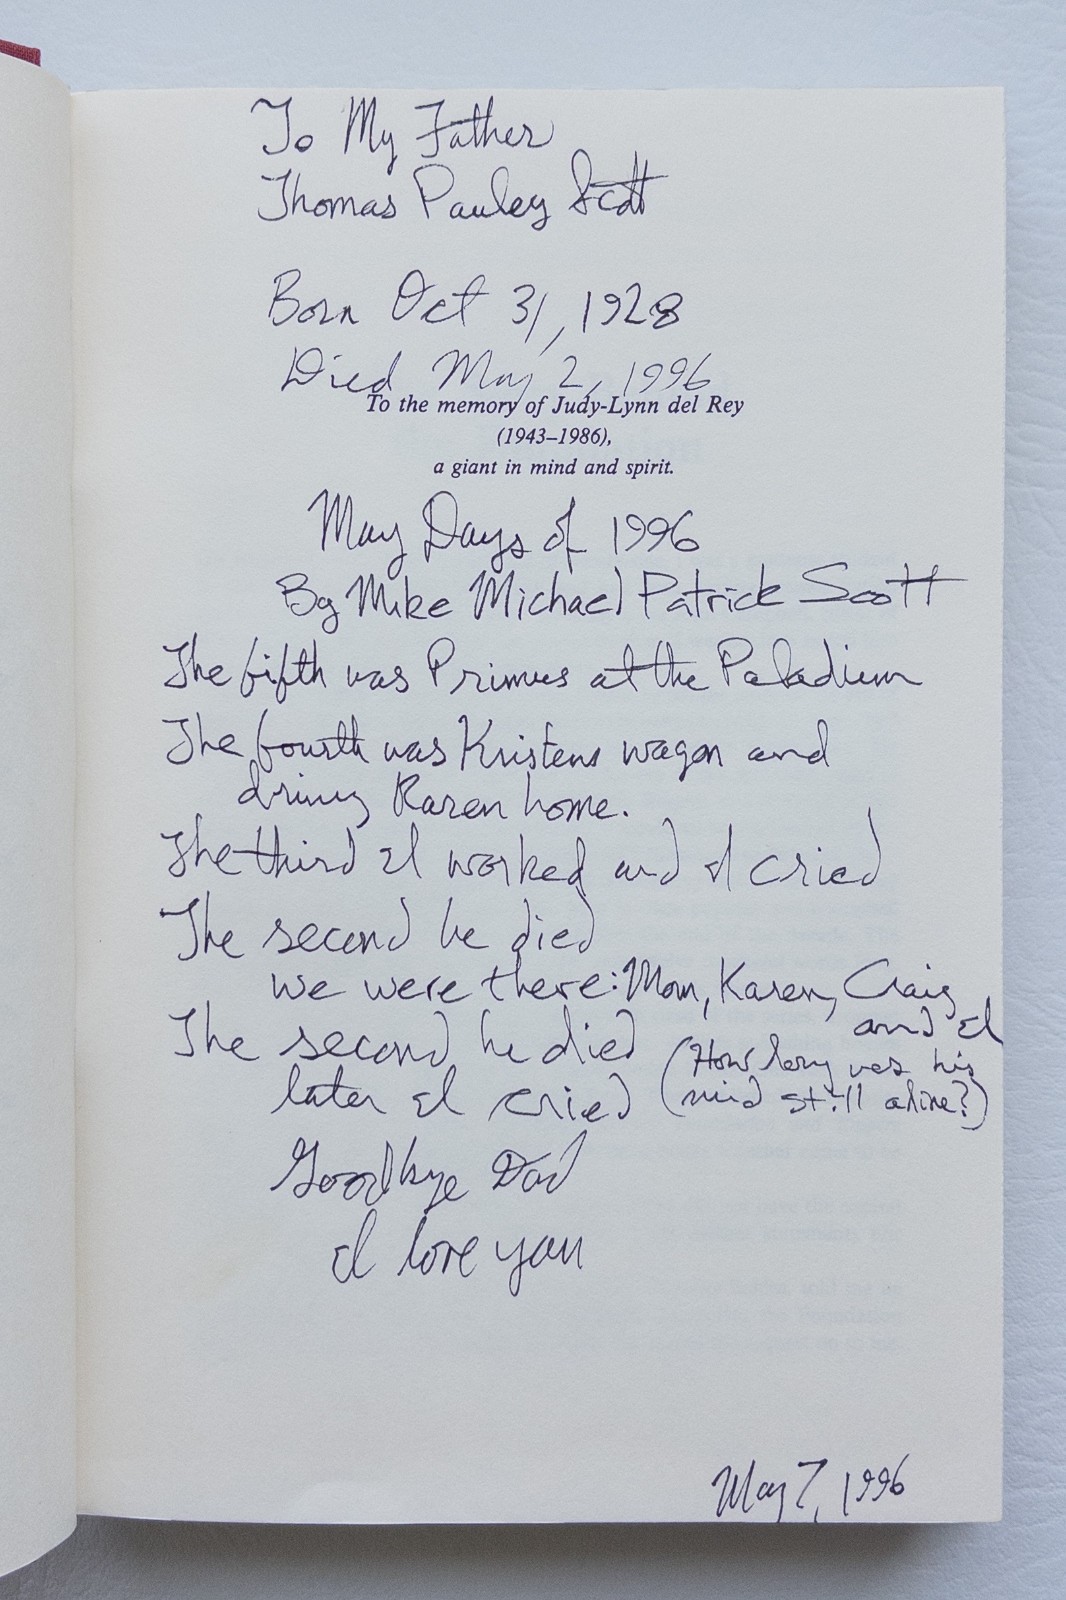 To My Father
Thomas Pauley Scott
Born Oct 31, 1928
Died May 2, 1996
To the memory of Judy-Lynn del Rey
(1943–1986),
a giant in mind and spirit.
May Days of 1996
By Mike Michael Patrick Scott
The fifth was Primus at the Paladium
The fourth was Kristens wagon and
driving Karen home.
The third I worked and I cried
The second he died
we were there: Mom, Karen, Craig
and I
The second he died
later I cried (How long was his
mind still alive?)
Goodbye Dad
I love you
May 7, 1996